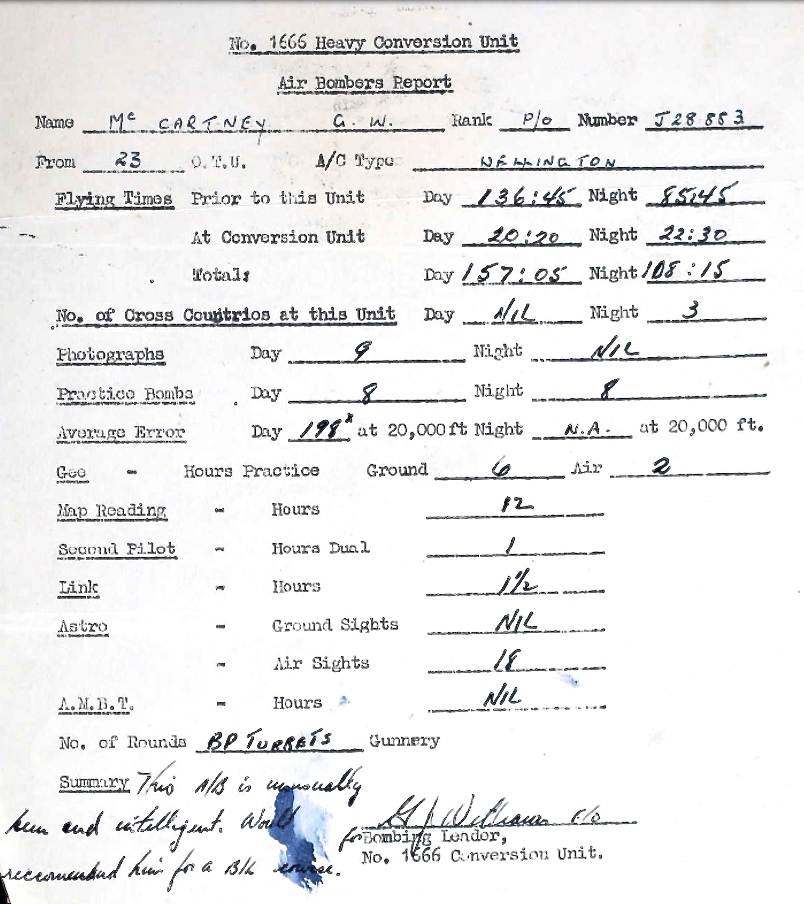 No. 1666 Heavy Conversion Unit
Air Bombers Report
Name Mc CARTNEY G. W. Rank P/o Number J28883
From 23 O.T.U. A/C Type WELLINGTON
Flying Times Prior to this Unit Day 136:45 Night 85:45
At Conversion Unit Day 20:20 Night 22:30
Total: Day 157:05 Night 108:15
No. of Cross Countrios at this Unit Day NIL Night 3
Photographs Day 9 Night NIL
Practice Bombs Day 8 Night 8
Average Error Day 198x at 20,000ft Night N.A. at 20,000 ft.
Gee - Hours Practice Ground 6 Air 2
Map Reading - Hours 12
Second Pilot - Hours Dual 1
Link - Hours 1½
Astro - Ground Sights NIL
- Air Sights 18
A.M.B.T. - Hours NIL
No. of Rounds BP TURRETS Gunnery
Summary This A/B is unusually
keen and intelligent. Would
recommend him for a B/L course.
F/O
for Bombing Leader,
No. 1666 Conversion Unit.